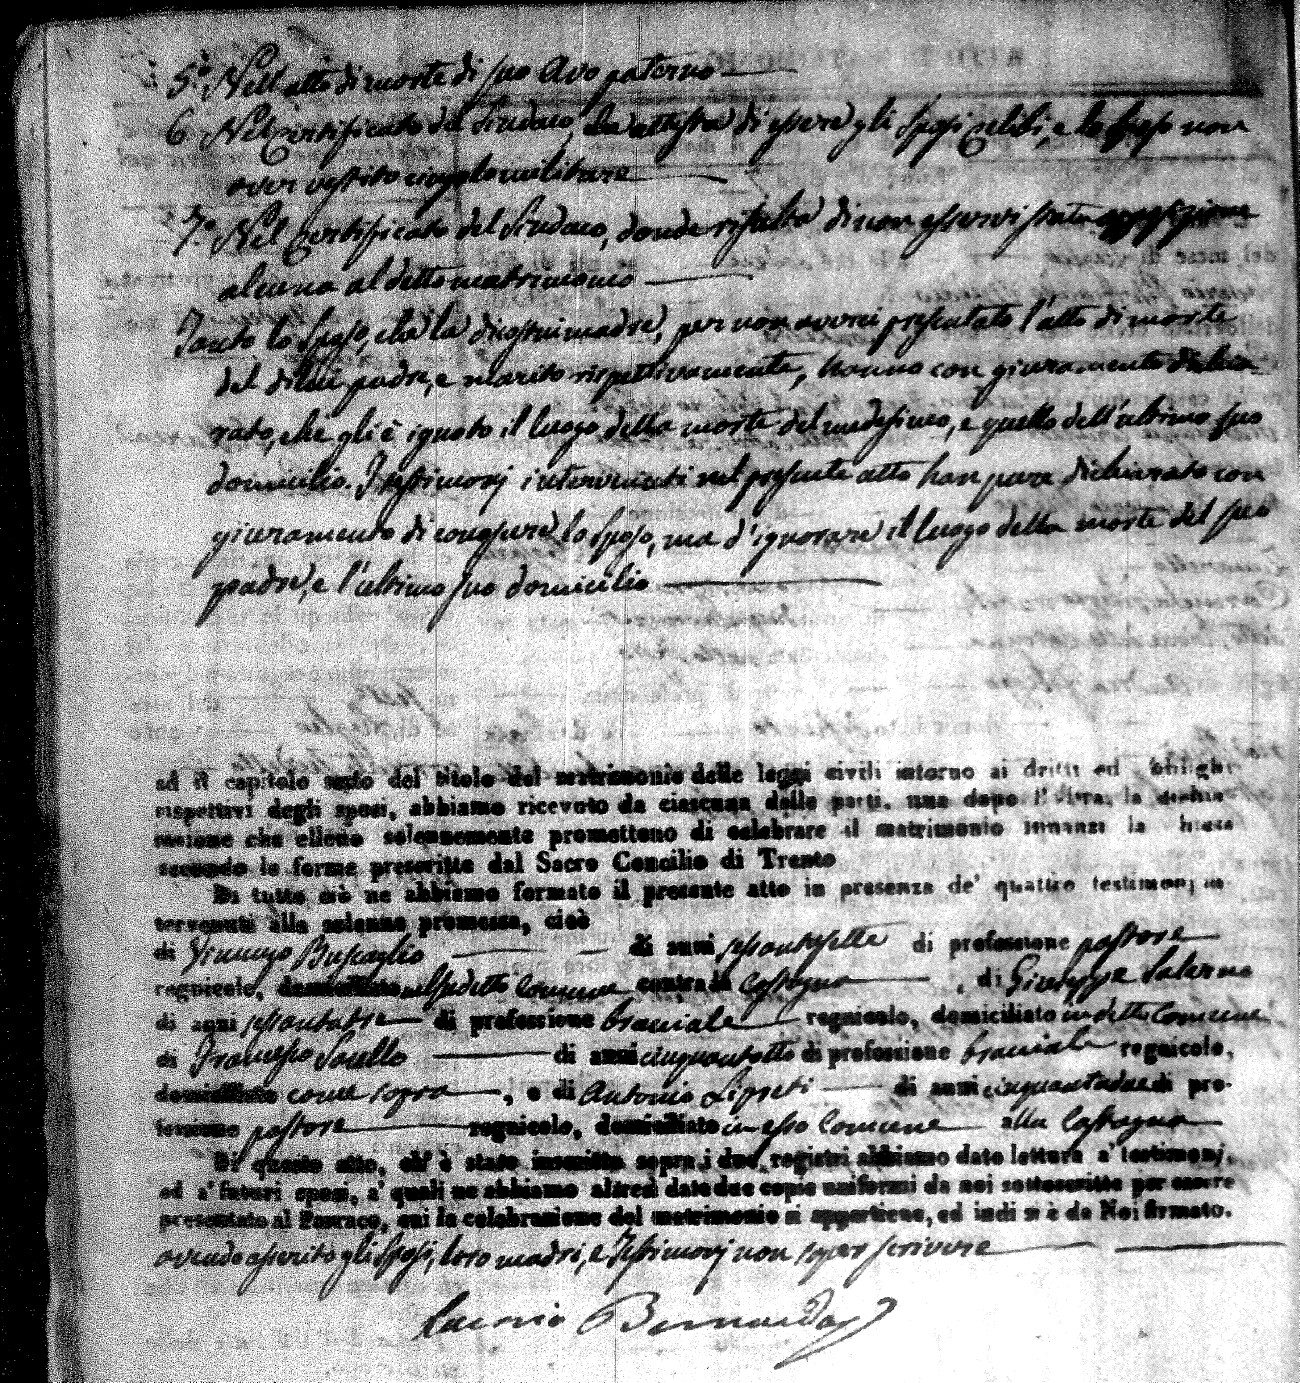 5.° Nell'atto di morte di suo Avo paterno
6. Nel certificato del Sindaco, che attesta di essere gli Sposi celibi, e lo sposo non
aver vestito cingolo militare
7.° Nel Certificato del Sindaco, donde risulta di non esservi stata opposizione
alcuna al detto matrimonio
Tanto lo Sposo, che la di madre, per non averci presentato l'atto di morte
del di lui padre, e marito rispettivamente, hanno con giuramento dichia-
rato, che gli è ignoto il luogo della morte del medesimo, e quello dell'ultimo suo
domicilio. I testimonj intervenuti nel presente atto han pure dichiarato con
giuramento di conoscere lo sposo, ma d'ignorare il luogo della morte del suo
padre, e l'ultimo suo domicilio
ed il capitolo sesto del titolo del matrimonio delle leggi civili intorno ai dritti ed obblighi
rispettivi degli sposi, abbiamo ricevuto da ciascuna delle parti, una dopo l'altra, la dichia
razione che elleno solennemente promettono di celebrare il matrimonio innanzi la chiesa
secondo le forme prescritte dal Sacro Concilio di Trento
Di tutto ciò ne abbiamo formato il presente atto in presenza de' quattro testimonj in
tervenuti alla solenne promessa, cioè
di Vincenzo Buscaglio di anni sessantasette di professione pastore
regnicolo, domiciliato nel sudetto Comune contrada Castagna, di Giuseppe Salerno
di anni sessantatre di professione bracciale regnicolo, domiciliato in detto Comune
di Francesco di anni cinquantotto di professione bracciale regnicolo,
domiciliato come sopra, e di Antonio di anni cinquantadue di pro-
fessione pastore regnicolo, domiciliato in esso Comune alla Castagna
Di questo atto, ch' è stato inscritto sopra i due registri abbiamo dato lettura a' testimonj,
ed a' futuri sposi, a' quali ne abbiamo altresì date due copie uniformi da noi sottoscritte per essere
presentate al Parroco, cui la celebrazione del matrimonio si appartiene, ed indi si è da Noi firmato.
avendo asserito gli Sposi, loro madri, e Testimonj non saper scrivere